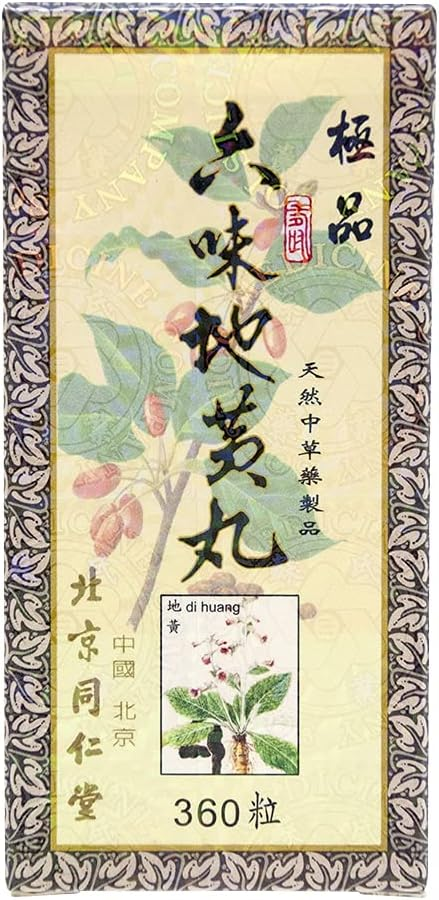 極品
六味地黄丸
天然中草藥製品
地 di huang
黃
北京同仁堂
中國 北京
360粒